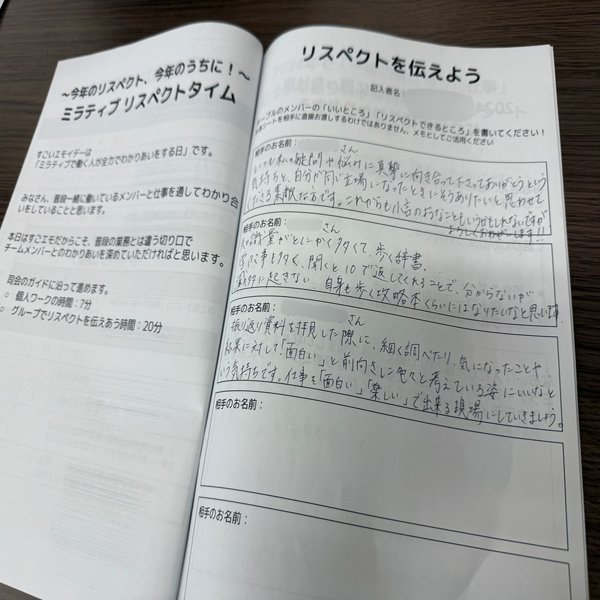 〜今年のリスペクト、今年のうちに！〜
ミラティブ リスペクトタイム
すごいエモイデーは
「ミラティブで働く人が全力でわかりあいをする日」です。
みなさん、普段一緒に働いているメンバーと仕事を通してわかり合
いをしていることと思います。
本日はすごエモだからこそ、普段の業務とは違う切り口で
チームメンバーとのわかりあいを深めていただければと思います。
司会のガイドに沿って進めます。
○ 個人ワークの時間：7分
○ グループでリスペクトを伝えあう時間：20分
リスペクトを伝えよう
記入者名：
ーブルのメンバーの「いいところ」「リスペクトできるところ」を書いてください！
シートを相手に直接お渡しするわけではありません、メモとしてご活用ください
相手のお名前： さん
いつも私の疑問や悩みに真摯に向き合って下さってありがとうという
気持ちと、自分が同じ立場になったときにそうありたいと思わせて
くださる素敵な方です。これからも
よろしくお願いします!!
相手のお名前： さん
知識量がとにかく多くて、歩く辞書。
学ぶ事も多く、聞くと10で返してくれることで、分からないが
起きない。自身も歩く攻略本くらいにはなりたいなと思い
相手のお名前： さん
振り返り資料を拝見した際に、細く調べたり、気になったことや
結果に対して「面白い」と前向きに色々と考えている姿にいいなと
いう気持ちです。仕事を「面白い」「楽しい」で出来る現場にしていきましょう。
相手のお名前：
相手のお名前：